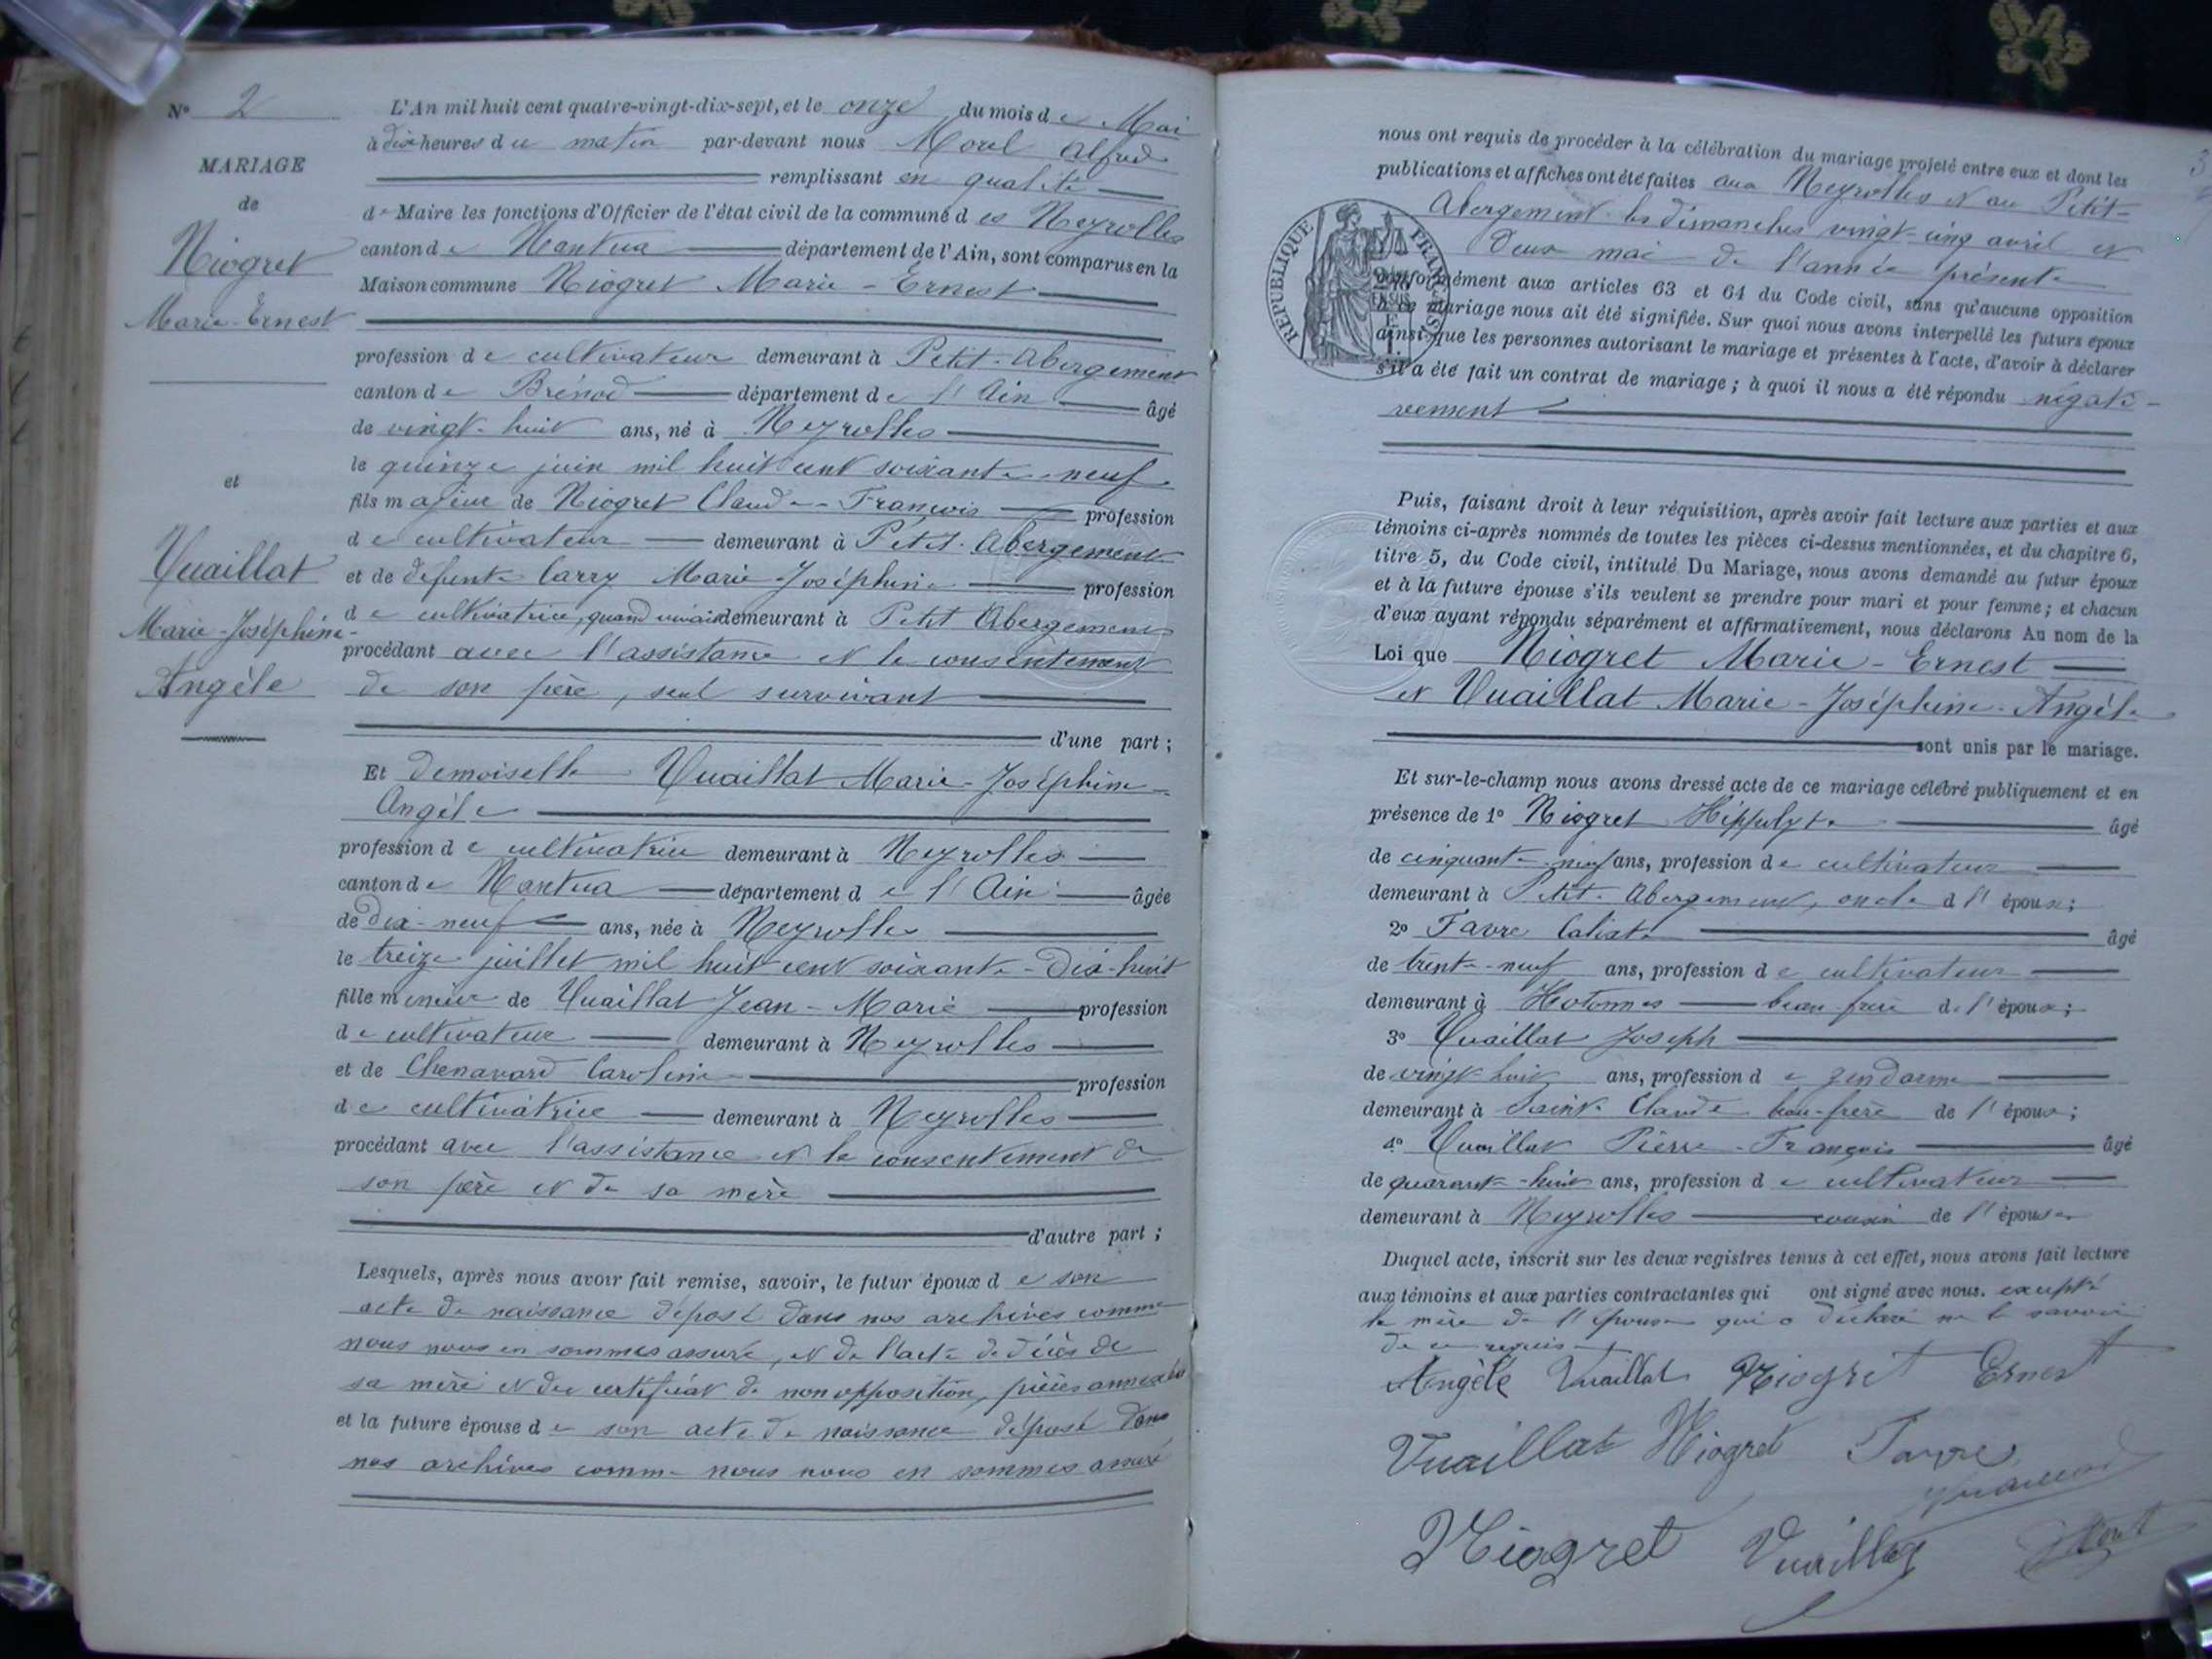 N° 2
MARIAGE
de
Niogret
Marie-Ernest
et
Vuaillat
Marie-Joséphine-
Angèle
L'An mil huit cent quatre-vingt-dix-sept, et le onze du mois de Mai
à dix heures du matin par-devant nous Morel Alfred
remplissant en qualité
de Maire les fonctions d'Officier de l'état civil de la commune des Neyrolles
canton de Nantua département de l'Ain, sont comparus en la
Maison commune Niogret Marie-Ernest
profession de cultivateur demeurant à Petit-Abergement
canton de Brénod département de l'Ain âgé
de vingt-huit ans, né à Neyrolles
le quinze juin mil huit cent soixante-neuf
fils majeur de Niogret Claude-François profession
de cultivateur demeurant à Petit-Abergement
et de défunte Carry Marie-Joséphine profession
de cultivatrice, quand vivait demeurant à Petit Abergement
procédant avec l'assistance et le consentement
de son père, seul survivant
d'une part ;
Et demoiselle Vuaillat Marie-Joséphine-
Angèle
profession de cultivatrice demeurant à Neyrolles
canton de Nantua département de l'Ain âgée
de dix-neuf ans, née à Neyrolles
le treize juillet mil huit cent soixante-dix-huit
fille mineure de Vuaillat Jean-Marie profession
de cultivateur demeurant à Neyrolles
et de Chenavard Caroline profession
de cultivatrice demeurant à Neyrolles
procédant avec l'assistance et le consentement de
son père et de sa mère
d'autre part ;
Lesquels, après nous avoir fait remise, savoir, le futur époux de son
acte de naissance déposé dans nos archives comme
nous nous en sommes assuré, et de l'acte de décès de
sa mère et du certificat de non opposition, pièces annexées
et la future épouse de son acte de naissance déposé dans
nos archives comme nous nous en sommes assuré
nous ont requis de procéder à la célébration du mariage projeté entre eux et dont les
publications et affiches ont été faites aux Neyrolles et au Petit-
Abergement les dimanches vingt-cinq avril et
deux mai de l'année présente
conformément aux articles 63 et 64 du Code civil, sans qu'aucune opposition
à ce mariage nous ait été signifiée. Sur quoi nous avons interpellé les futurs époux
ainsi que les personnes autorisant le mariage et présentes à l'acte, d'avoir à déclarer
s'il a été fait un contrat de mariage ; à quoi il nous a été répondu négati-
vement
REPUBLIQUE FRANÇAISE
Puis, faisant droit à leur réquisition, après avoir fait lecture aux parties et aux
témoins ci-après nommés de toutes les pièces ci-dessus mentionnées, et du chapitre 6,
titre 5, du Code civil, intitulé Du Mariage, nous avons demandé au futur époux
et à la future épouse s'ils veulent se prendre pour mari et pour femme ; et chacun
d'eux ayant répondu séparément et affirmativement, nous déclarons Au nom de la
Loi que Niogret Marie-Ernest
et Vuaillat Marie-Joséphine-Angèle
sont unis par le mariage.
Et sur-le-champ nous avons dressé acte de ce mariage célébré publiquement et en
présence de 1° Niogret Hippolyte âgé
de cinquante-neuf ans, profession de cultivateur
demeurant à Petit-Abergement, oncle de l'époux ;
2° Favre Calixte âgé
de trente-neuf ans, profession de cultivateur
demeurant à Hotonnes beau-frère de l'époux ;
3° Vuaillat Joseph
de vingt-huit ans, profession de gendarme
demeurant à Saint-Claude beau-frère de l'époux ;
4° Vuaillat Pierre-François âgé
de quarante-huit ans, profession de cultivateur
demeurant à Neyrolles cousin de l'épouse
Duquel acte, inscrit sur les deux registres tenus à cet effet, nous avons fait lecture
aux témoins et aux parties contractantes qui ont signé avec nous. excepté
la mère de l'épouse qui a déclaré ne le savoir
de ce requis
Angèle Vuaillat Niogret Ernest
Vuaillat Niogret Favre
Niogret Vuaillat